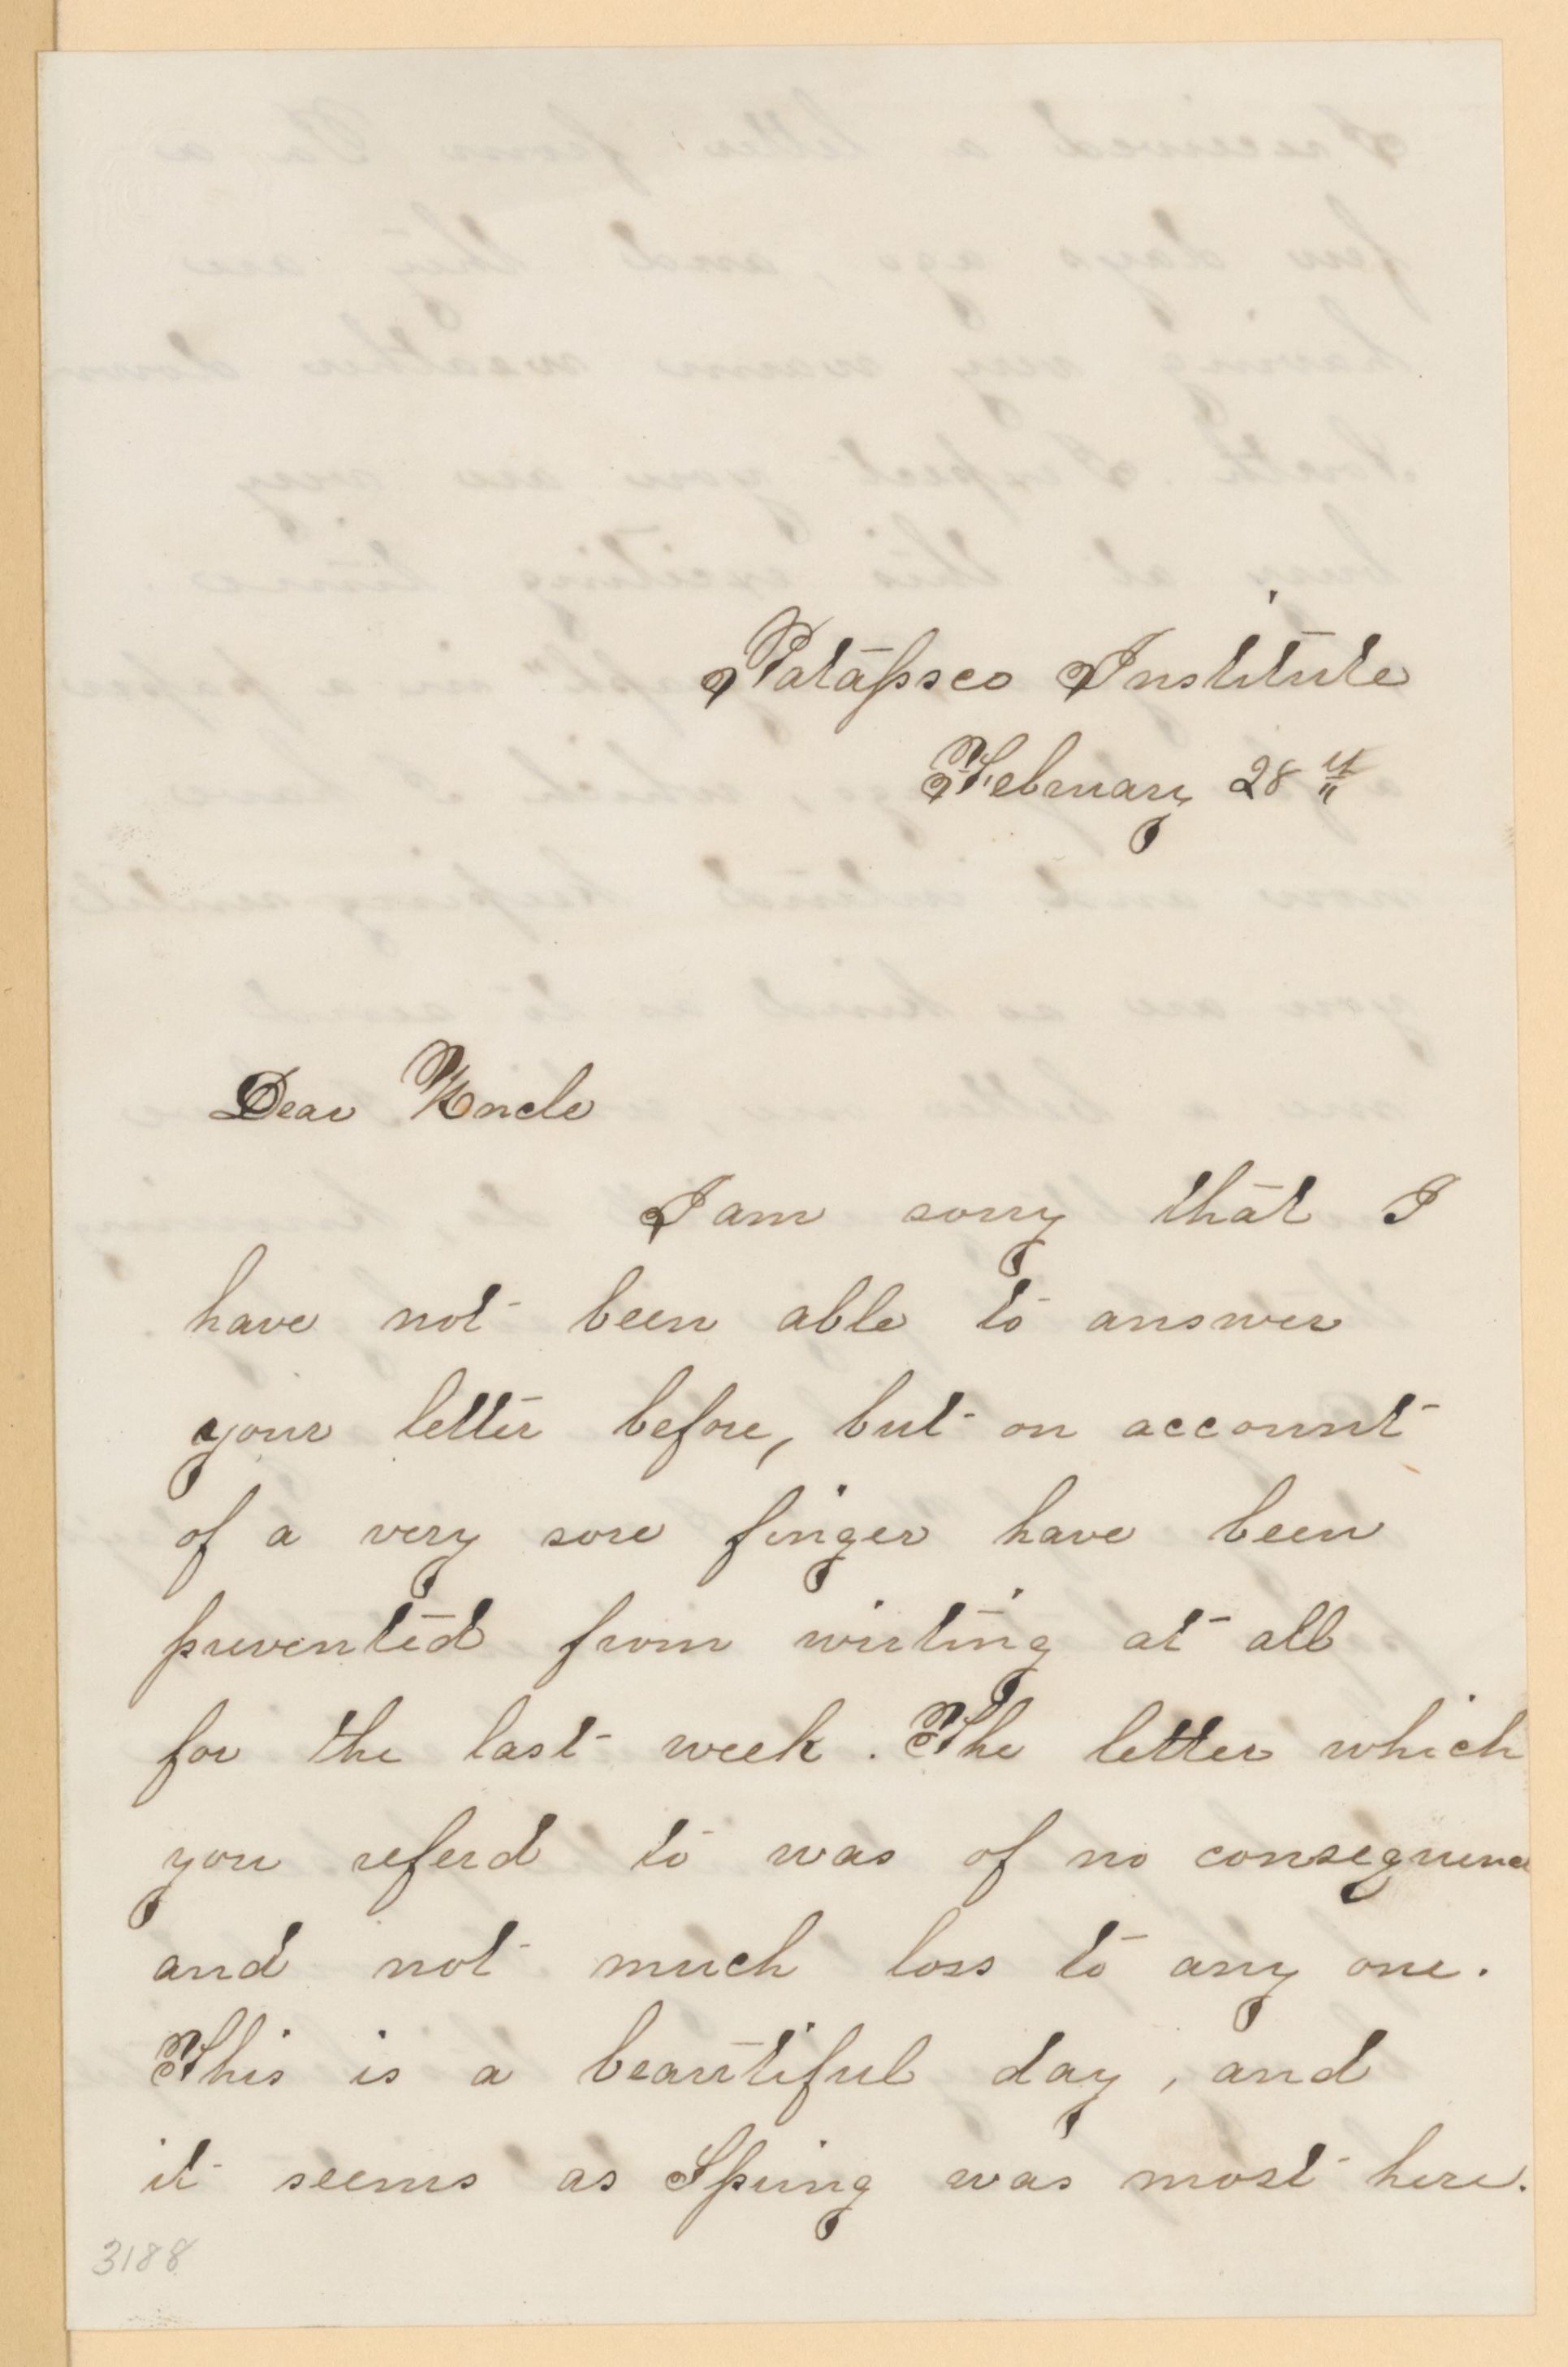 Patapsco Institute
February 28th
Dear Uncle
I am sorry that I
have not been able to answer
your letter before, but on account
of a very sore finger have been
prevented from wirting at all
for the last week. The letter which
you referd to was of no consequence
and not much loss to any one.
This is a beautiful day, and
it seems as Spring was most here.
3188